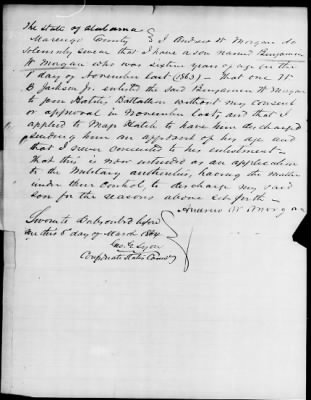 The State of Alabama
Marengo County } I Andrew W Morgan do
solemnly swear that I have a son named Benjamin
W Morgan who was sixteen years of age on the
day of November last (1863) — That one W
B Jackson Jr. enlisted the said Benjamin W Morgan
to join Hatch's Battalion without my consent
or approval in November last, and that I
applied to Maj Hatch to have him discharged
sending him an affidavit of his age and
that I never consented to his enlistment —
That this is now intended as an application
to the Military authorities, having the matter
under their control, to discharge my said
son for the reasons above set forth —
Andrew W Morgan
Sworn to & subscribed before
me this 5 day of March 1864
Geo. G. Lyon
Confederate States Commr